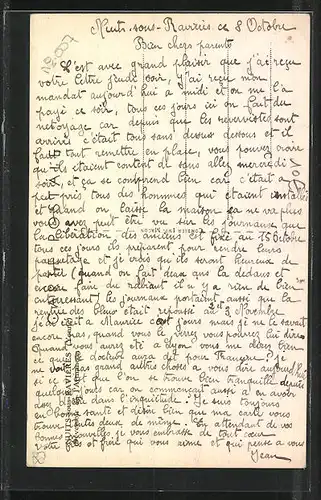 Nuits-sous-Ravières ce 8 Octobre
Bien chers parents
C'est avec grand plaisir que j'ai reçu
votre lettre jeudi soir, j'ai reçu mon
mandat aujourd'hui a midi et on me l'a
payé ce soir, tous ces jours ici on fait du
nettoyage car depuis que les reservistes sont
arrivés c'était tous sans dessus dessous et il
faut tout remettre en place, vous pouvez croire
qu'ils étaient content de s'en aller mercredi
soir, et ça se comprend bien car c'était a
peu près tous des hommes qui étaient
et quand on laisse la maison ça ne va plus
vous avez peut être vu sur les journaux que
la libération des anciens est fixé au 15 Octobre
tous ces jours ils préparent pour rendre leurs
paquetage et je crois qu'ils seront heureux de
partir (quand on fait deux ans la dedans et
encore faire du il y a rien de bien
interressant) les journaux portaient aussi que la
rentrée des bleus était repoussé au 3 Novembre
je écrit a Maurice ces jours mais je ne le savait
encore pas, quand vous le verrez vous pourrez lui dire
Quand vous aurez été a Lyon vous me direz bien
ce que le docteur aura dit pour Françoise? je
ne vois pas grand autres choses a vous dire aujourd'hui
si ce que l'on se trouve bien tranquille depuis
quelques jours car on commençait aussi a en avoir
dans l'inquiétude. Je suis toujours
en bonne santé et désire bien que ma carte vous
trouve tutes deux de même. En attendant de vos
bonnes nouvelles je vous embrasse de tout cœur
votre fils et frère qui vous aime et qui pense a vous
Jean